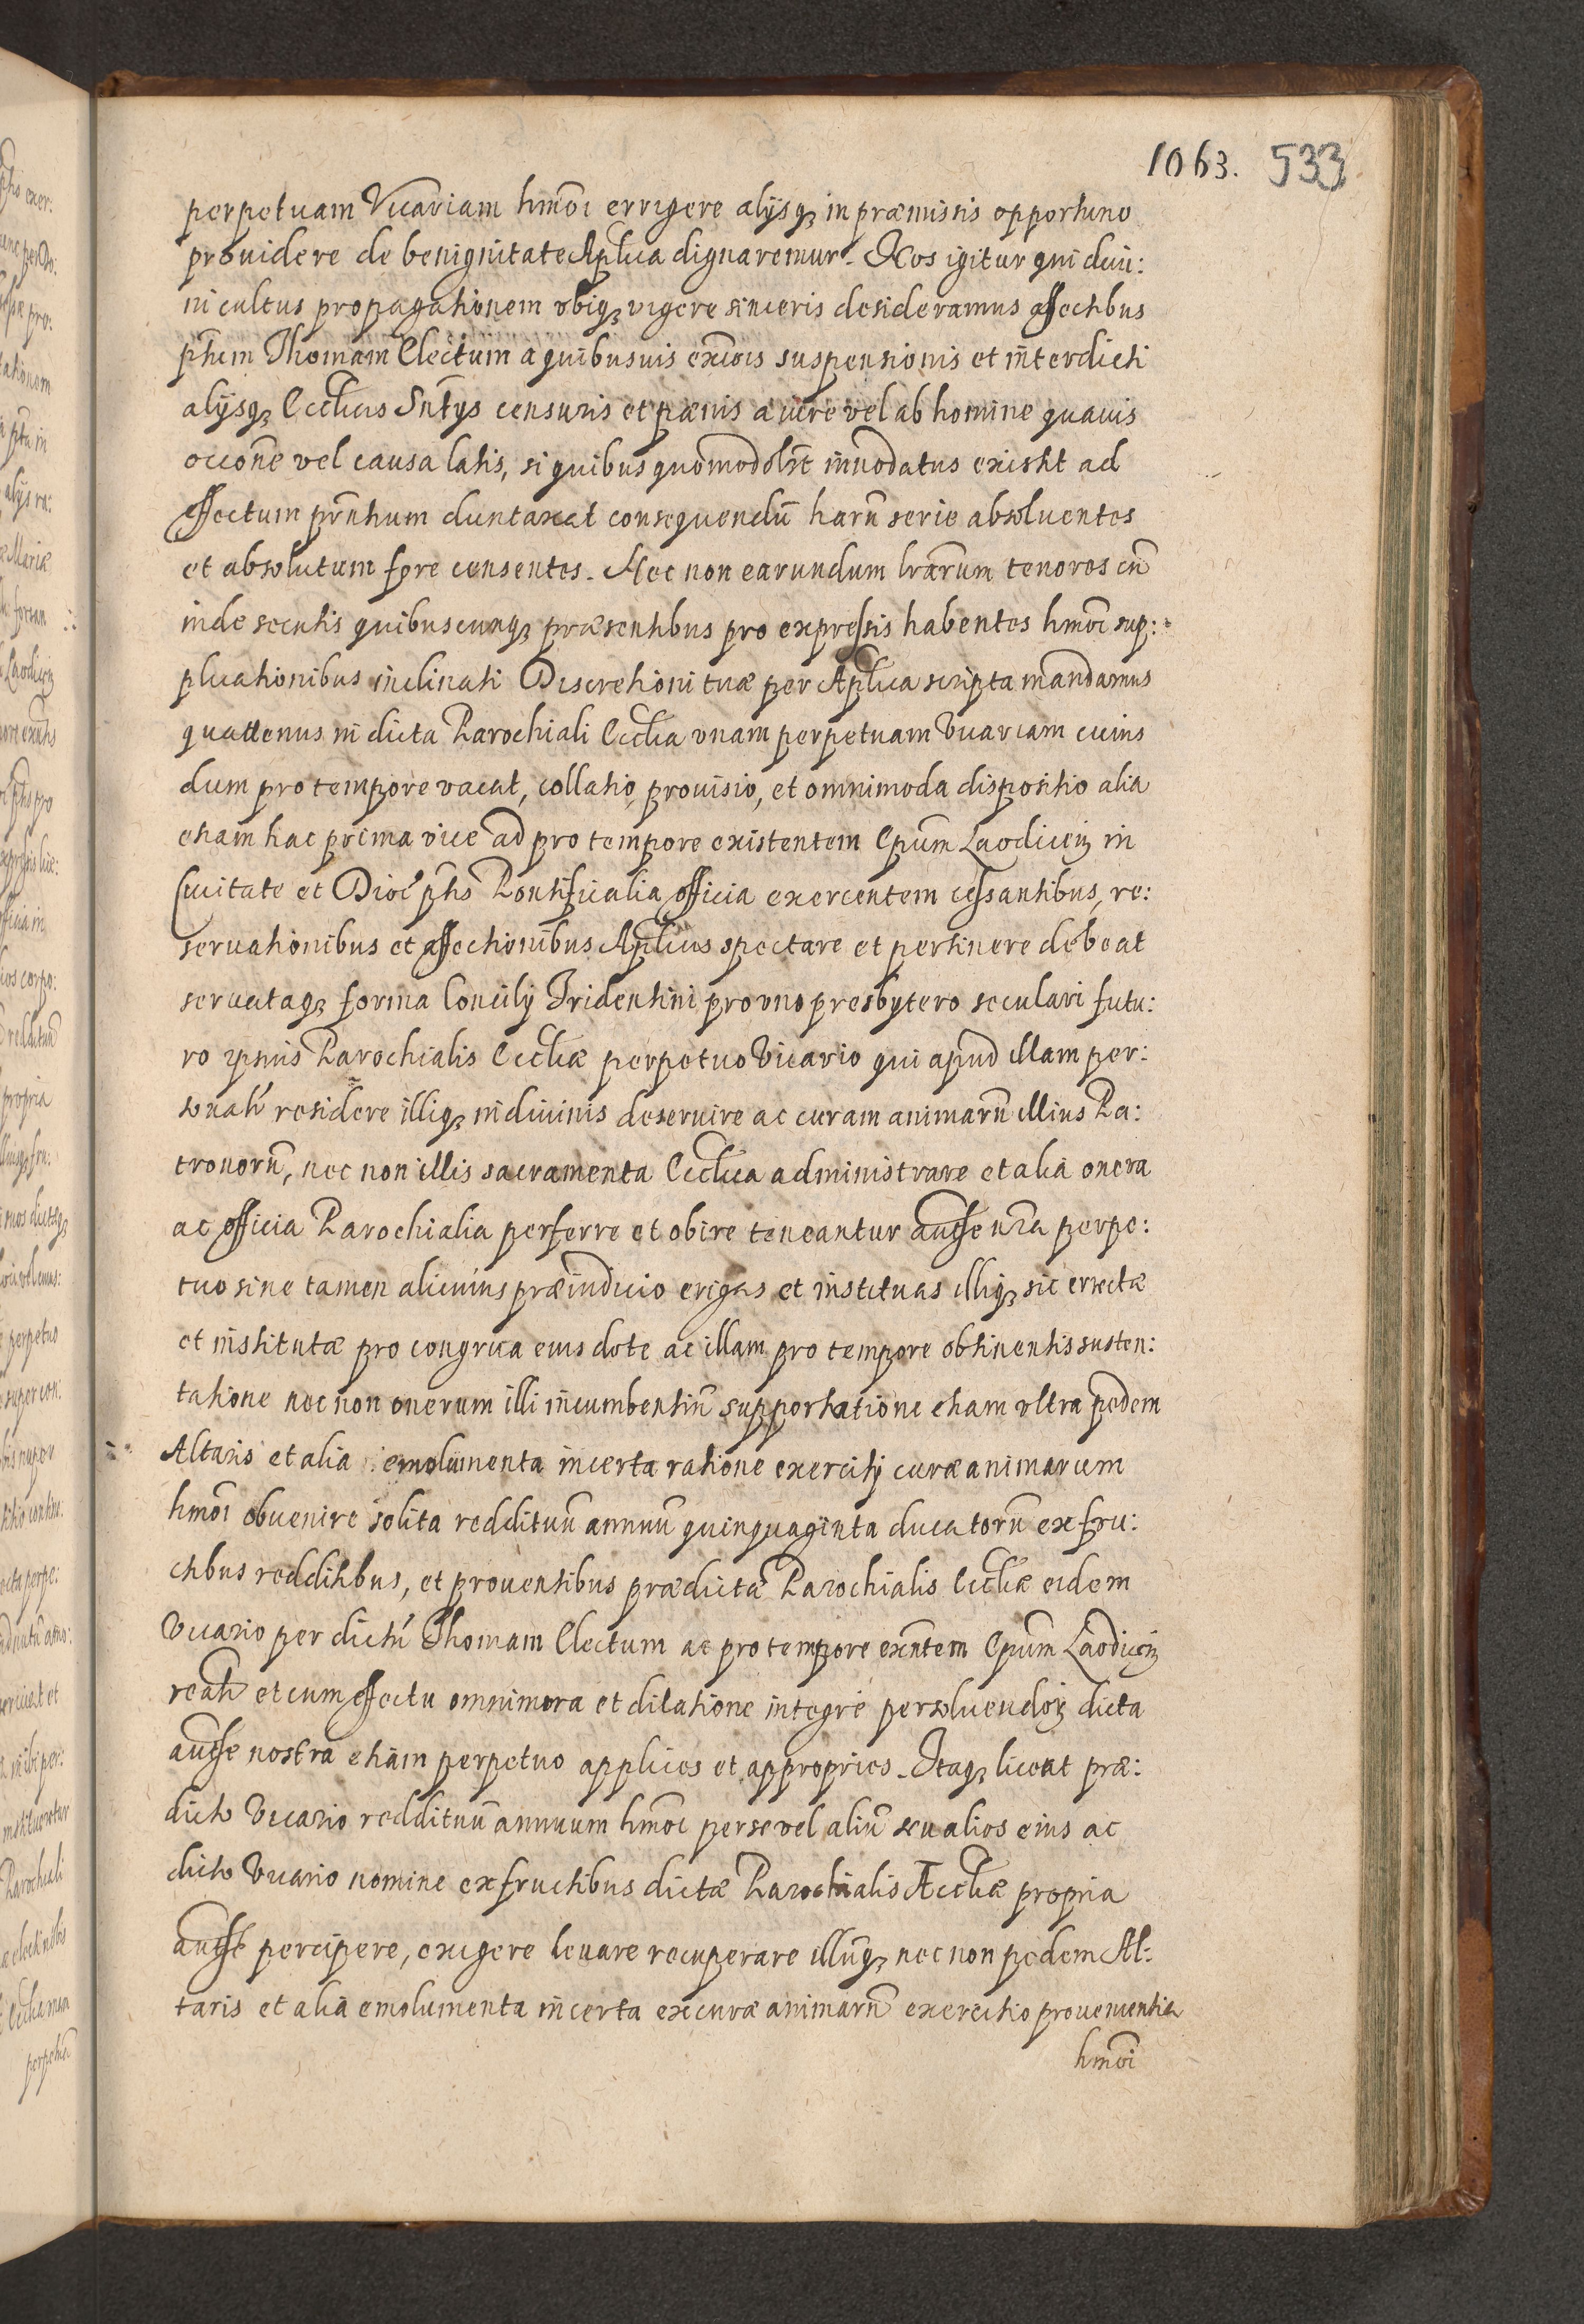 1063. 533
perpetuam Vicariam hmōi errigere alijsq₃ in præmissis opportune
prouidere de benignitate Aplica dignaremur. Nos igitur qui diui:
ni cultus propagationem vbiq₃ vigere sinceris desideramus affectibus
phtum Thomam Electum a quibusuis excōis suspensionis et interdicti
alijsq₃ Ecclicis Sntijs censuris et pænis a iure vel ab homine quauis
occōne vel causa latis, si quibus quomodolt innodatus existit ad
effectum prntium duntaxat consequendū harū serie absoluentes
et absolutum fore censentes. Nec non earundum lrārum tenores cū
inde secutis quibuscunq₃ præsentibus pro expressis habentes hmōi sup:
plicationibus inclinati Discretioni tuæ per Aplica scripta mandamus
quattenus in dicta Parochiali Ecclia vnam perpetuam Vicariam cuius
dum pro tempore vacat, collatio, prouisio, et omnimoda dispositio alia
etiam hac prima vice ad pro tempore existentem Epum Laodiceñ in
Ciuitate et Dioc̄ phs Pontificalia officia exercentem cessantibus, re:
seruationibus et affectionibus Aplicis spectare et pertinere debeat
seruataq₃ forma Concilij Tridentini pro vno presbytero seculari futu:
ro ipsius Parochialis Eccliæ perpetuo Vicario qui apud illam per:
sonalr residere illiq₃ in diuinis deseruire ac curam animarū illius Pa:
tronorū, nec non illis sacramenta Ecclica administrare et alia onera
ac officia Parochialia perferre et obire teneantur aucte nrā perpe:
tuo sine tamen alicuius præiudicio erigas et instituas illiq₃ sic errectæ
et institutæ pro congrua eius dote ac illam pro tempore obtinentis susten:
tatione nec non onerum illi incumbentiū supportatione etiam vltra pedem
Altaris et alia emolumenta incerta ratione exercitij curæ animarum
hmōi obuenire solita reddituū annuū quinquaginta ducatorū ex fru:
ctibus redditibus, et prouentibus prædictæ Parochialis Eccliæ eidem
Vicario per dictū Thomam Electum ac pro tempore exntem Epum Laodiceñ
realr et cum effectu omnimora et dilatione integre persoluendoȝ dicta
aucte nostra etiam perpetuo applices et appropries. Itaq₃ liceat præ:
dicto Vicario reddituū annuum hmōi per se vel aliū seu alios eius ac
dicto Vicario nomine ex fructibus dictæ Parochialis Eccliæ propria
aucte percipere, exigere leuare recuperare illūq₃ nec non pedem Al:
taris et alia emolumenta incerta ex curæ animarū exercitio prouenientia
hmōi